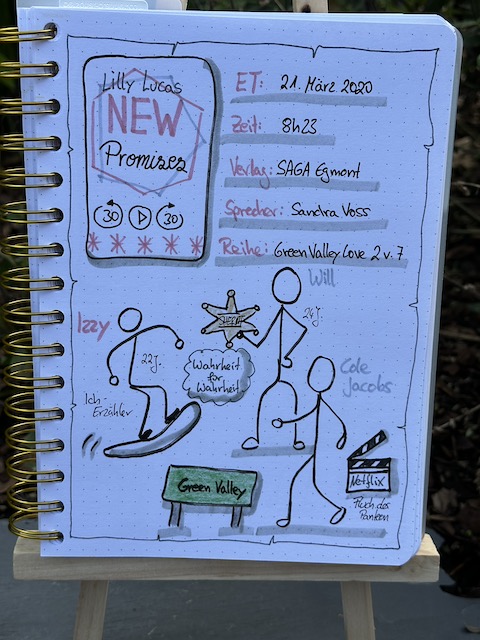 Lilly Lucas
NEW
Promises
30 30
ET: 21. März 2020
Zeit: 8h23
Verlag: SAGA Egmont
Sprecher: Sandra Voss
Reihe: Green Valley Love 2 v. 7
Will
Izzy
22J.
Ich-
Erzähler
SHERIFF
24J.
Wahrheit
für
Wahrheit
Cole
Jacobs
Netflix
Fluch des
Green Valley